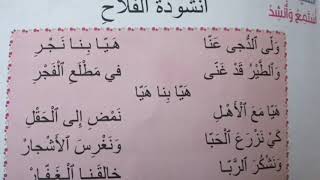 أنشودة الفلاح
استمع وأنشد
وَلَّى ٱلدُّجَى عَنَّا هَيَّا بِنَا نَجْرِ
وَٱلطَّيْرُ قَدْ غَنَّى فِي مَطْلَعِ ٱلْفَجْرِ
هَيَّا بِنَا هَيَّا
هَيَّا مَعَ ٱلْأَهْلِ نَمْضِ إِلَى ٱلْحَقْلِ
كَيْ نَزْرَعَ ٱلْحَبَّا وَنَغْرِسَ ٱلْأَشْجَار
وَنَشْكُرَ ٱلرَّبَّا خَالِقَنَا ٱلْغَفَّار